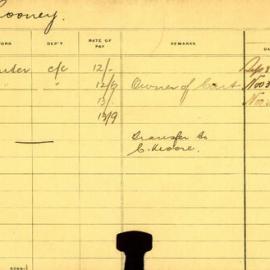 ooney.
ORK DEP'T RATE OF PAY REMARKS DA
nter c/c 12/-
" " 12/9 Owner of Cart Nov 3
13/- Nov
13/9
Transfer to
C. Moore.